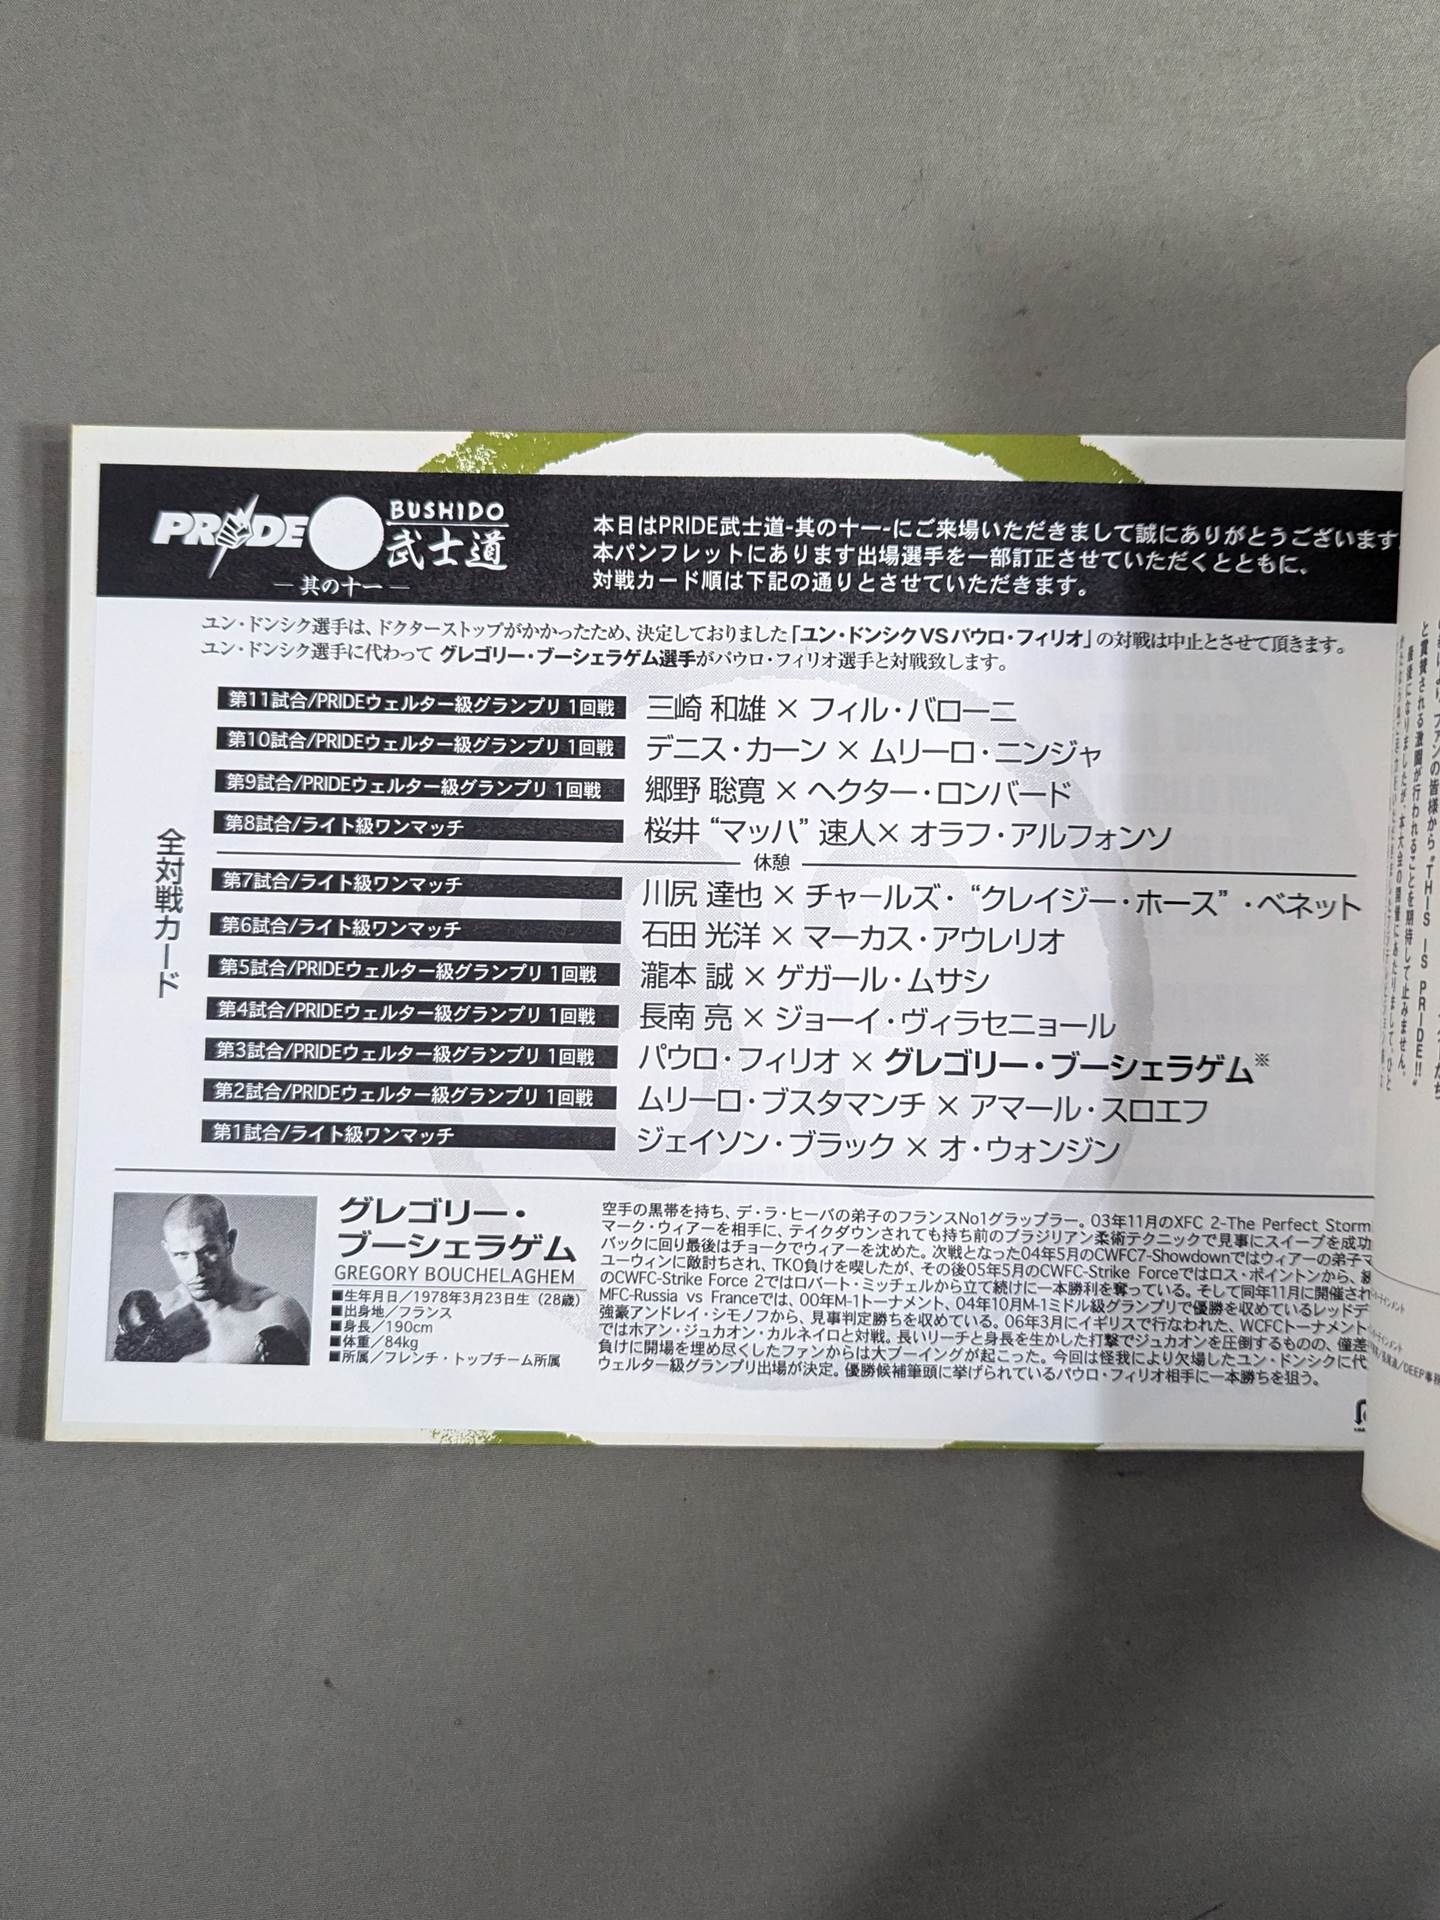 PRIDE BUSHIDO
武士道
― 其の十一 ―
本日はPRIDE武士道-其の十一-にご来場いただきまして誠にありがとうございます
本パンフレットにあります出場選手を一部訂正させていただくとともに、
対戦カード順は下記の通りとさせていただきます。
ユン・ドンシク選手は、ドクターストップがかかったため、決定しておりました「ユン・ドンシクVSパウロ・フィリオ」の対戦は中止とさせて頂きます。
ユン・ドンシク選手に代わって グレゴリー・ブーシェラゲム選手がパウロ・フィリオ選手と対戦致します。
全対戦カード
第11試合/PRIDEウェルター級グランプリ 1回戦 三崎 和雄 × フィル・バローニ
第10試合/PRIDEウェルター級グランプリ 1回戦 デニス・カーン × ムリーロ・ニンジャ
第9試合/PRIDEウェルター級グランプリ 1回戦 郷野 聡寛 × ヘクター・ロンバード
第8試合/ライト級ワンマッチ 桜井 “マッハ” 速人× オラフ・アルフォンソ
休憩
第7試合/ライト級ワンマッチ 川尻 達也 × チャールズ・“クレイジー・ホース”・ベネット
第6試合/ライト級ワンマッチ 石田 光洋 × マーカス・アウレリオ
第5試合/PRIDEウェルター級グランプリ 1回戦 瀧本 誠 × ゲガール・ムサシ
第4試合/PRIDEウェルター級グランプリ 1回戦 長南 亮 × ジョーイ・ヴィラセニョール
第3試合/PRIDEウェルター級グランプリ 1回戦 パウロ・フィリオ × グレゴリー・ブーシェラゲム※
第2試合/PRIDEウェルター級グランプリ 1回戦 ムリーロ・ブスタマンチ × アマール・スロエフ
第1試合/ライト級ワンマッチ ジェイソン・ブラック × オ・ウォンジン
グレゴリー・
ブーシェラゲム
GREGORY BOUCHELAGHEM
■生年月日／1978年3月23日生（28歳）
■出身地／フランス
■身長／190cm
■体重／84kg
■所属／フレンチ・トップチーム所属
空手の黒帯を持ち、デ・ラ・ヒーバの弟子のフランスNo1グラップラー。03年11月のXFC 2-The Perfect Storm
マーク・ウィアーを相手に、テイクダウンされても持ち前のブラジリアン柔術テクニックで見事にスイープを成功
バックに回り最後はチョークでウィアーを沈めた。次戦となった04年5月のCWFC7-Showdownではウィアーの弟子マ
ユーウィンに敵討ちされ、TKO負けを喫したが、その後05年5月のCWFC-Strike Forceではロス・ポイントンから、
のCWFC-Strike Force 2ではロバート・ミッチェルから立て続けに一本勝利を奪っている。そして同年11月に開催され
MFC-Russia vs Franceでは、00年M-1トーナメント、04年10月M-1ミドル級グランプリで優勝を収めているレッドデ
強豪アンドレイ・シモノフから、見事判定勝ちを収めている。06年3月にイギリスで行なわれた、WCFCトーナメント
ではホアン・ジュカオン・カルネイロと対戦。長いリーチと身長を生かした打撃でジュカオンを圧倒するものの、僅差
負けに開場を埋め尽くしたファンからは大ブーイングが起こった。今回は怪我により欠場したユン・ドンシクに代
ウェルター級グランプリ出場が決定。優勝候補筆頭に挙げられているパウロ・フィリオ相手に一本勝ちを狙う。
ファンの皆様から“THIS IS PRIDE!!”
と賞賛される激闘が行われることを期待して止みません。
最後になりましたが、本大会の開催にあたりまして、ひと